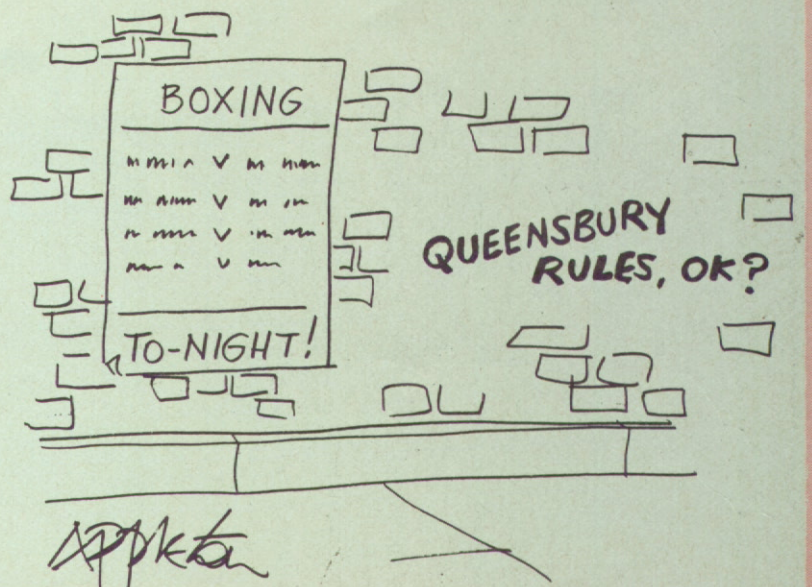 BOXING
V
V
V
V
TO-NIGHT!
QUEENSBURY
RULES, OK?
Appleton